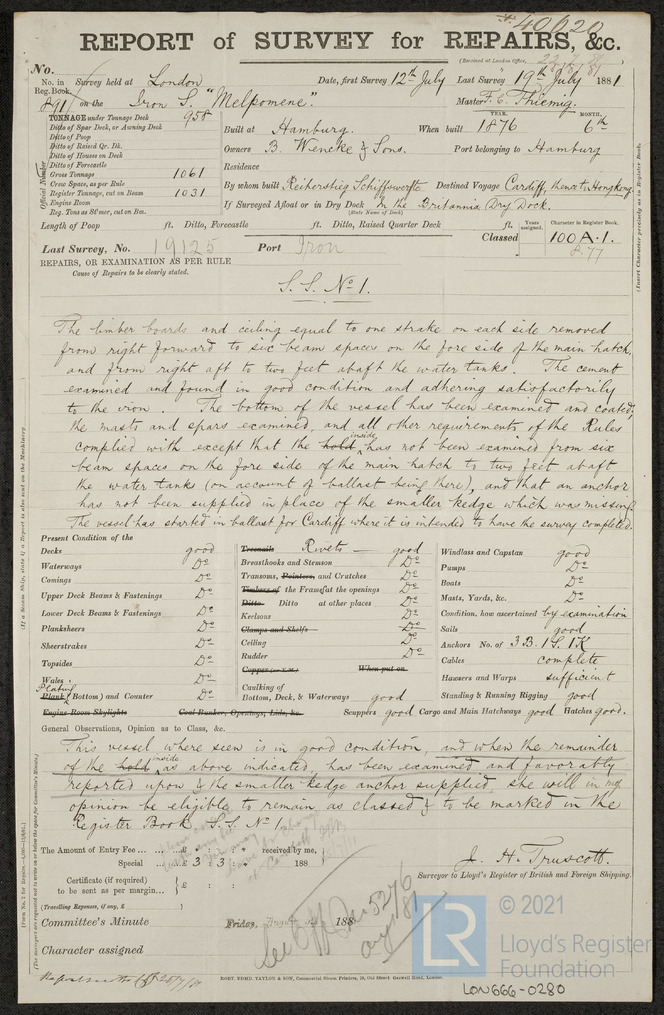 40020
REPORT of SURVEY for REPAIRS, &c.
(Received at London Office,
No.
No. in Reg. Book. Survey held at London Date, first Survey 12th July Last Survey 19th July 1881
891 on the Iron S. "Melpomene". Master F. C. Thiemig.
TONNAGE under Tonnage Deck 958
Ditto of Spar Deck, or Awning Deck
Ditto of Poop
Ditto of Raised Qr. Dk.
Ditto of Houses on Deck
Ditto of Forecastle
Gross Tonnage 1061
Crew Space, as per Rule
Register Tonnage, cut on Beam 1031
Engine Room
Reg. Tons as St'mer, cut on Bm.
Official Number
Built at Hamburg. When built YEAR. 1876 MONTH. 6th
Owners B. Wencke & Sons. Port belonging to Hamburg
Residence
By whom built Reiherstieg Schiffswerfte Destined Voyage Cardiff, thence to Hongkong
If Surveyed Afloat or in Dry Dock In the Britannia Dry Dock.
(State Name of Dock)
Length of Poop ft. Ditto, Forecastle ft. Ditto, Raised Quarter Deck ft.
Years assigned. Character in Register Book.
Classed 100 A.1.
8.77
Last Survey, No. 19125 Port Iron
REPAIRS, OR EXAMINATION AS PER RULE
Cause of Repairs to be clearly stated.
S.S. No 1.
The limber boards and ceiling equal to one strake on each side removed
from right forward to six beam spaces on the fore side of the main hatch,
and from right aft to two feet abaft the water tanks. The cement
examined and found in good condition and adhering satisfactorily
to the iron. The bottom of the vessel has been examined and coated,
the masts and spars examined, and all other requirements of the Rules
complied with except that the hold inside has not been examined from six
beam spaces on the fore side of the main hatch to two feet abaft
the water tanks (on account of ballast being there), and that an anchor
has not been supplied in place of the smaller kedge which was missing.
The vessel has started in ballast for Cardiff where it is intended to have the survey completed.
Present Condition of the
Decks good
Waterways Do
Comings Do
Upper Deck Beams & Fastenings Do
Lower Deck Beams & Fastenings Do
Planksheers Do
Sheerstrakes Do
Topsides Do
Wales Do
Plating
Plank (Bottom) and Counter Do
Engine Room Skylights Coal Bunker, Openings, Lids, &c.
Treenails Rivets good
Breasthooks and Stemson Do
Transoms, Pointers, and Crutches Do
Timbers of the Frames at the openings Do
Ditto Ditto at other places Do
Keelsons Do
Clamps and Shelfs Do
Ceiling Do
Rudder Do
Copper (or Y.M.) When put on
Caulking of
Bottom, Deck, & Waterways good
Windlass and Capstan good
Pumps Do
Boats Do
Masts, Yards, &c. Do
Condition, how ascertained by examination
Sails good
Anchors No. of 3B. 1S. 1K
Cables complete
Hawsers and Warps sufficient
Standing & Running Rigging good
Scuppers good Cargo and Main Hatchways good Hatches good.
General Observations, Opinion as to Class, &c.
This vessel, where seen is in good condition, and when the remainder
of the hold inside as above indicated, has been examined and favorably
reported upon & the smaller kedge anchor supplied, she will in my
opinion be eligible to remain as classed & to be marked in the
Register Book S.S. No 1.
The Amount of Entry Fee ... £ : : received by me,
Special ... £ 3 : 3 : 188
Certificate (if required)
to be sent as per margin... £ :
(Travelling Expenses, if any, £ )
J. H. Truscott.
Surveyor to Lloyd's Register of British and Foreign Shipping.
Committee's Minute Friday, 188
Character assigned
ROBT. EDMD. TAYLOR & SON, Commercial Steam Printers, 19, Old Street, Goswell Road, London.
LR
© 2021
Lloyd's Register
Foundation
LON666-0280